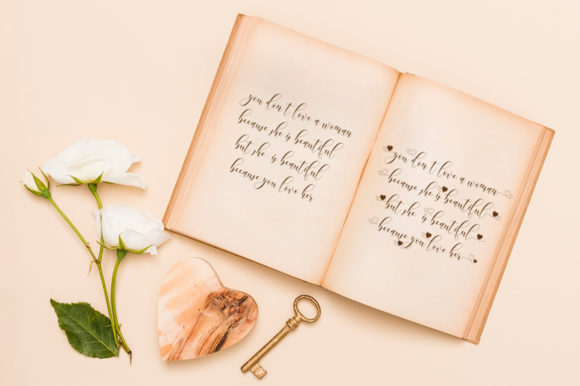 you don't love a woman
because she is beautiful
but she is beautiful
because you love her
you don't love a woman
because she is beautiful
but she is beautiful
because you love her